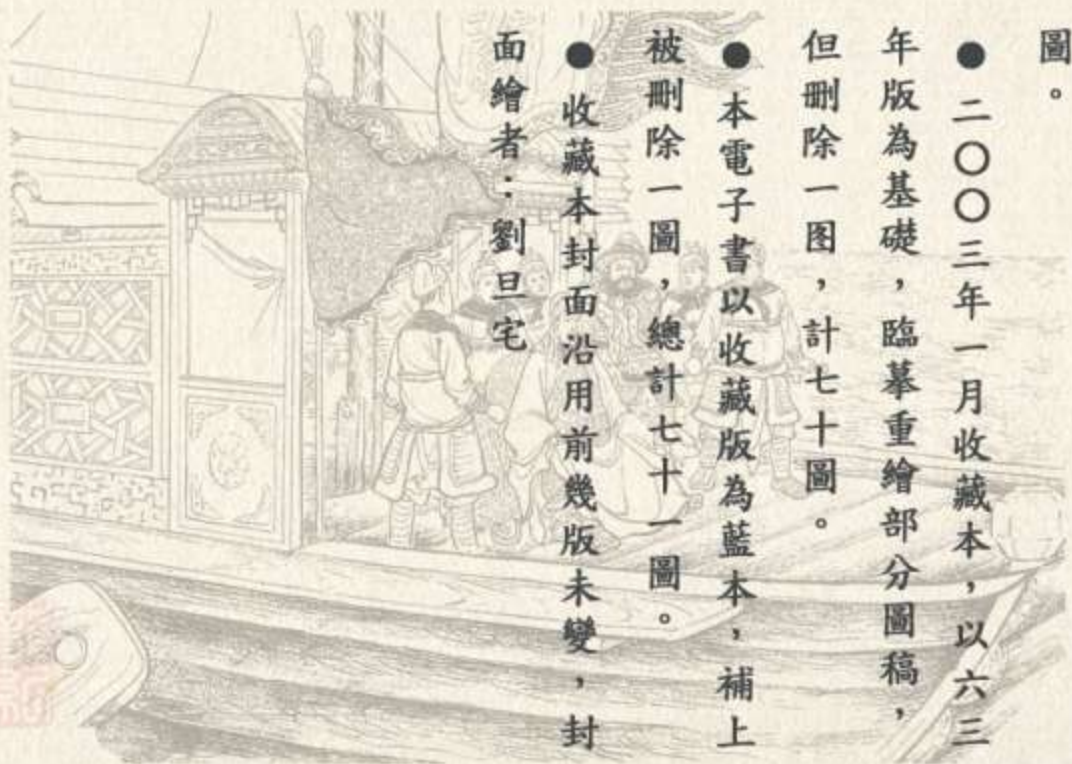 圖。
● 二〇〇三年一月收藏本，以六三
年版為基礎，臨摹重繪部分圖稿，
但刪除一图，計七十圖。
● 本電子書以收藏版為藍本，補上
被刪除一圖，總計七十一圖。
● 收藏本封面沿用前幾版未變，封
面繪者：劉旦宅